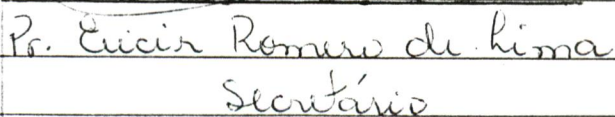 Pr. Eucir Romero de Lima
Secretário